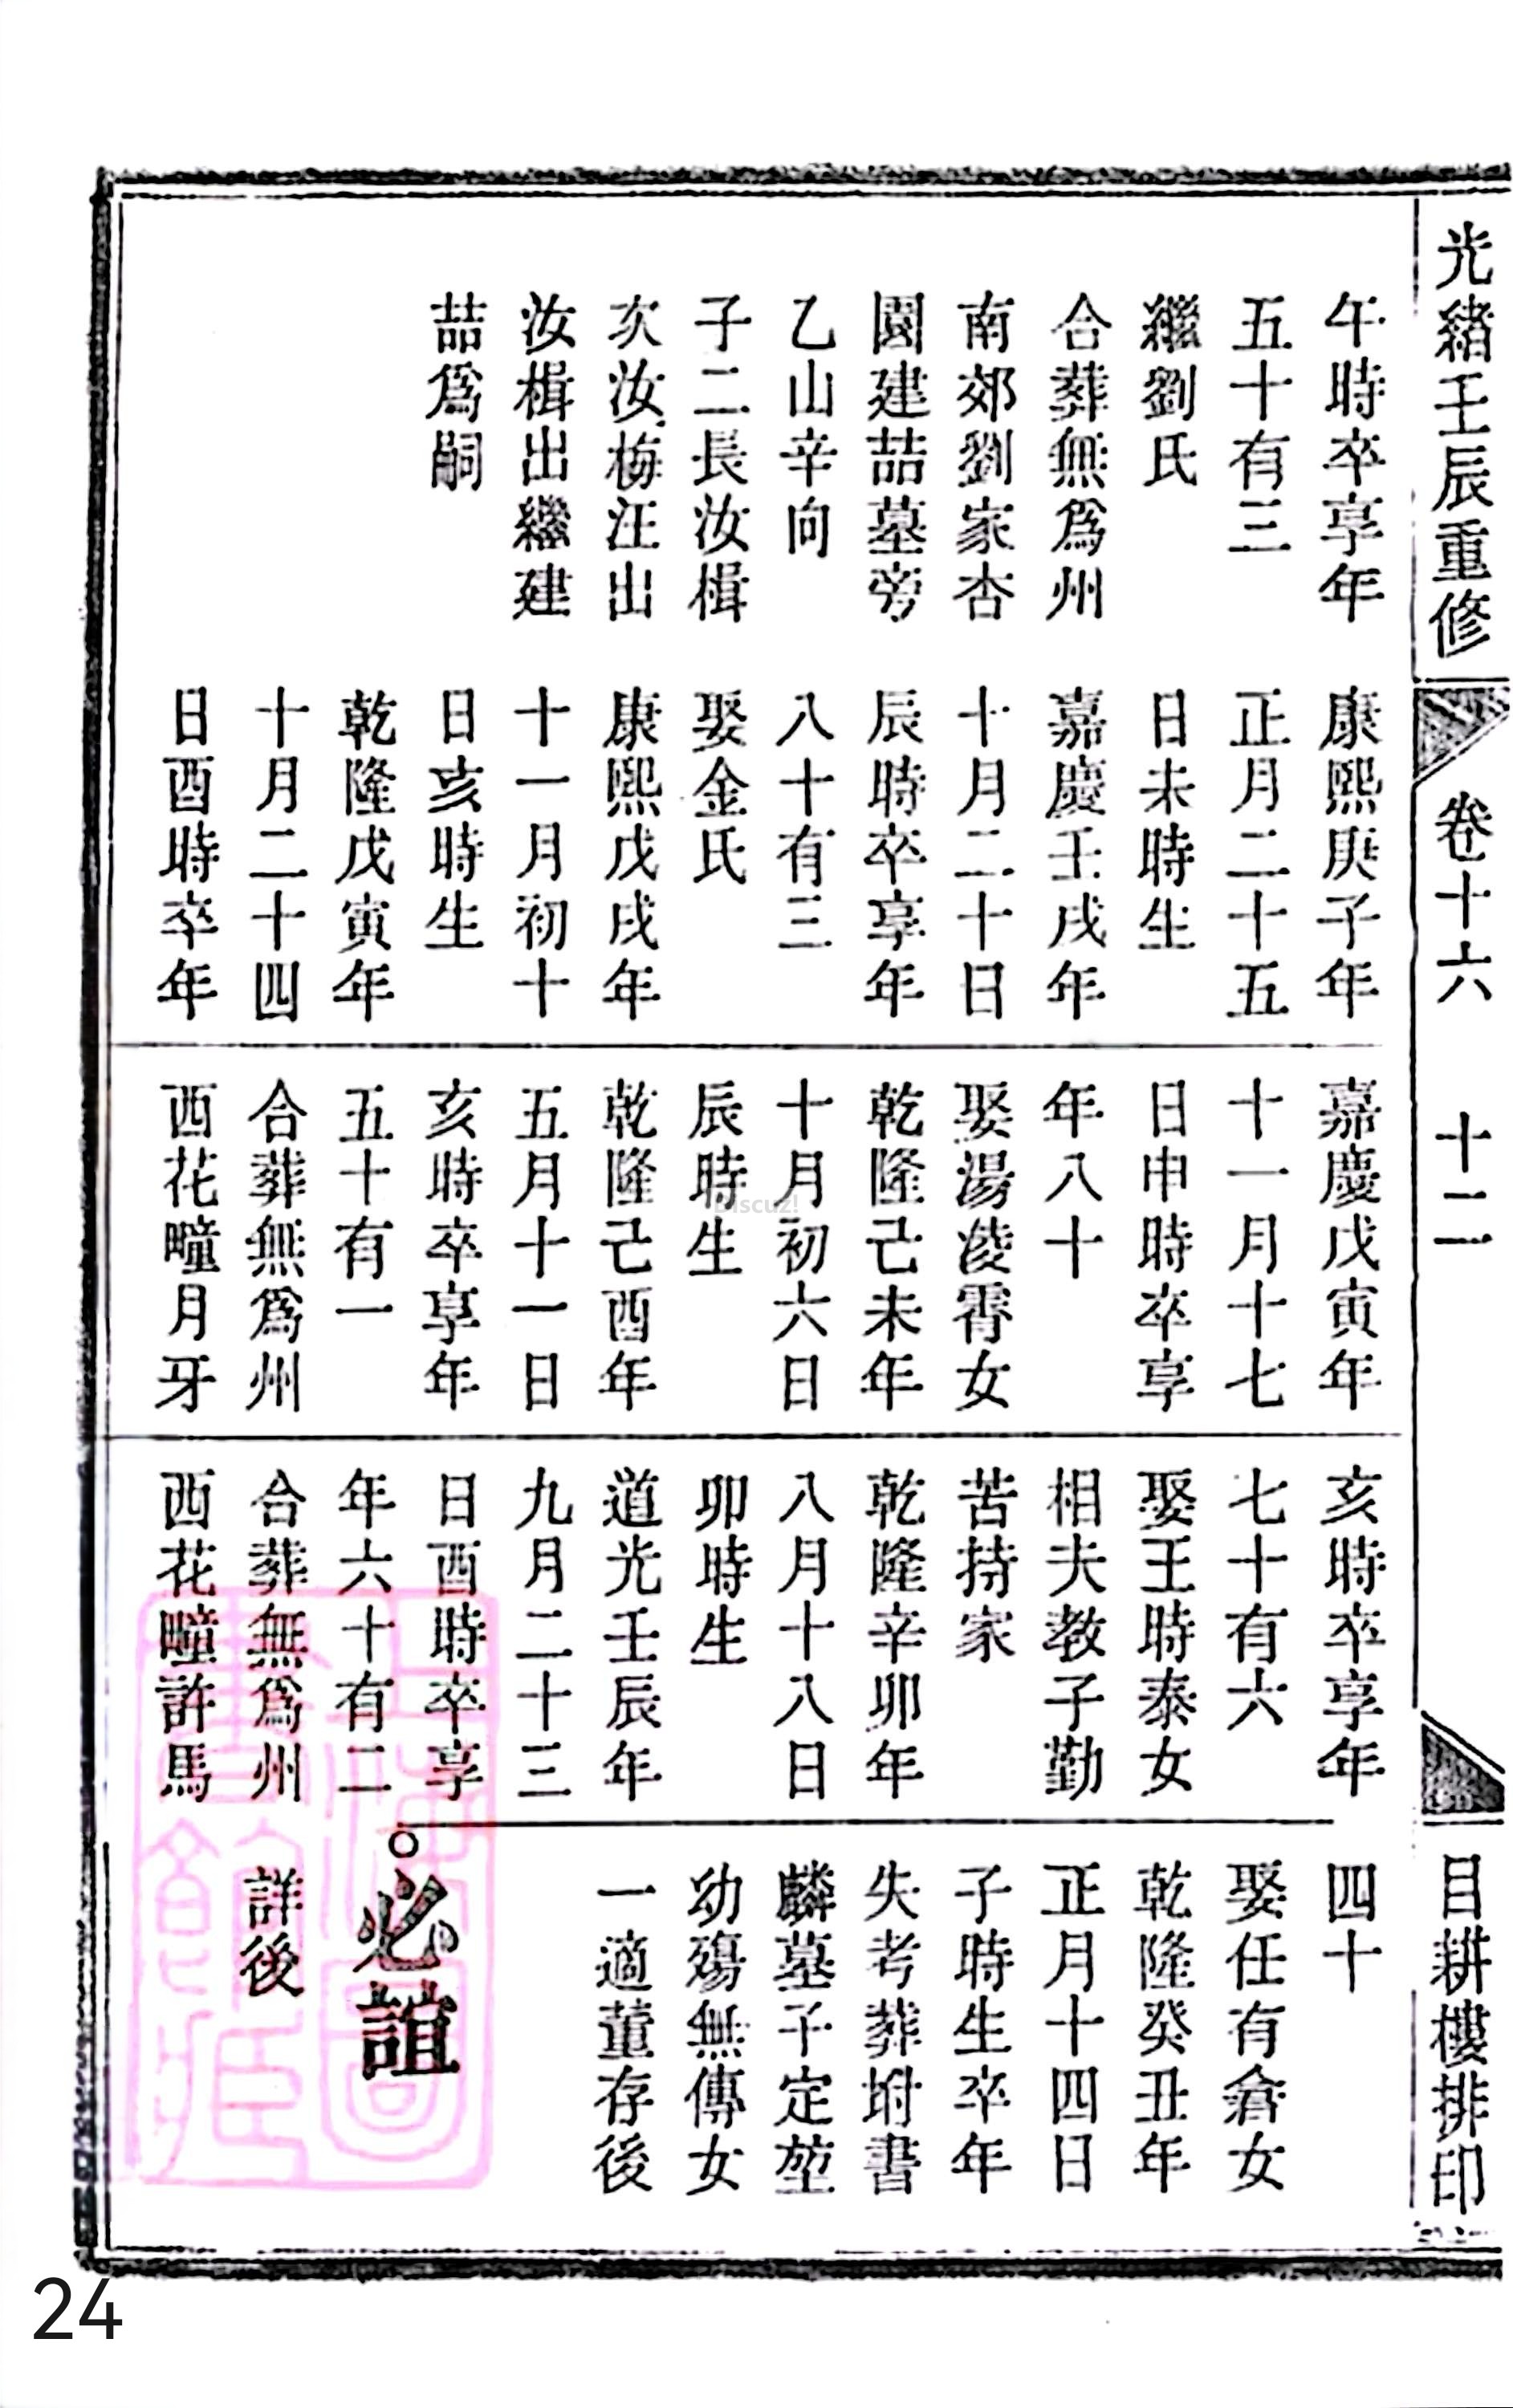 光緒壬辰重修
卷十六
十二
目耕樓排印
午時卒享年
五十有三
繼劉氏
合葬無為州
南郊劉家杏
園建喆墓旁
乙山辛向
子二長汝楫
次汝梅汪出
汝楫出繼建
喆為嗣
康熙庚子年
正月二十五
日未時生
嘉慶壬戌年
十月二十日
辰時卒享年
八十有三
娶金氏
康熙戊戌年
十一月初十
日亥時生
乾隆戊寅年
十月二十四
日酉時卒年
嘉慶戊寅年
十一月十七
日申時卒享
年八十
娶湯淩霄女
乾隆己未年
十月初六日
辰時生
乾隆己酉年
五月十一日
亥時卒享年
五十有一
合葬無為州
西花疃月牙
亥時卒享年
七十有六
娶王時泰女
相夫教子勤
苦持家
乾隆辛卯年
八月十八日
卯時生
道光壬辰年
九月二十三
日酉時卒享
年六十有二
合葬無為州
西花疃許馬
四十
娶任有倉女
乾隆癸丑年
正月十四日
子時生卒年
失考葬坿書
麟墓子定堃
幼殤無傳女
一適董存後
必誼
詳後
Discuz!
24